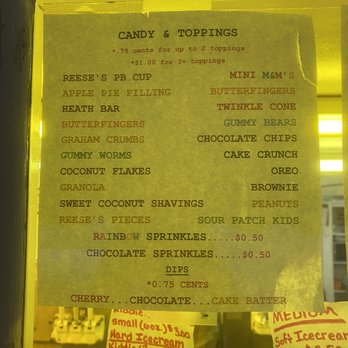 CANDY & TOPPINGS
* 75 cents for up to 2 toppings
*$1.00 for 3+ toppings
REESE'S PB CUP MINI M&M'S
APPLE PIE FILLING BUTTERFINGERS
HEATH BAR TWINKLE CONE
BUTTERFINGERS GUMMY BEARS
GRAHAM CRUMBS CHOCOLATE CHIPS
GUMMY WORMS CAKE CRUNCH
COCONUT FLAKES OREO
GRANOLA BROWNIE
SWEET COCONUT SHAVINGS PEANUTS
REESE'S PIECES SOUR PATCH KIDS
RAINBOW SPRINKLES.....$0.50
CHOCOLATE SPRINKLES.....$0.50
DIPS
*0.75 CENTS
CHERRY...CHOCOLATE...CAKE BATTER
Kiddie
Small (6oz.)
Hard Icecream
MEDIUM
Soft Icecream